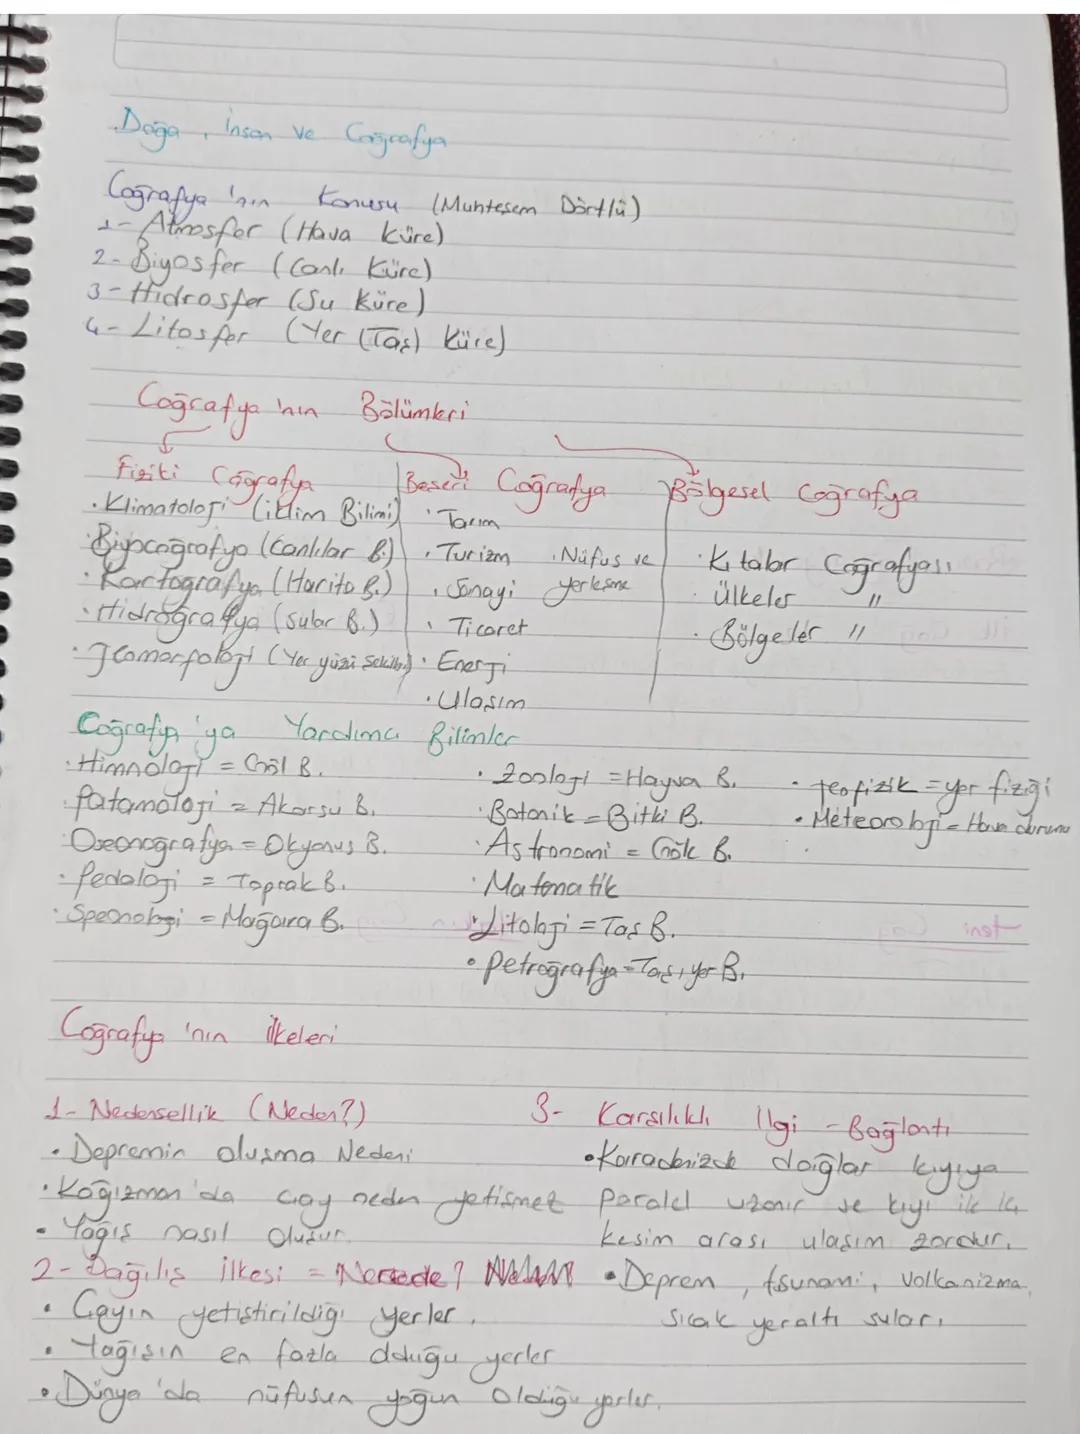 Doğa, İnsan ve Coğrafya
Coğrafya'nın Konusu (Muhteşem Dörtlü)
1- Atmosfer (Hava Küre)
2- Biyosfer (Canlı Küre)
3- Hidrosfer (Su Küre)
4- Litosfer (Yer (Taş) Küre)
Coğrafya'nın Bölümleri
Fiziki Coğrafya
• Klimatoloji (iklim Bilimi)
• Biyocoğrafya (Canlılar B.)
• Kartografya (Harita B.)
• Hidroğrafya (Sular B.)
• Jeomorfoloji (Yer yüzü Şekilleri)
Beşeri Coğrafya
• Tarım
• Turizm
• Sanayi
• Ticaret
• Enerji
• Ulaşım
• Nüfus ve
yerleşme
Bölgesel Coğrafya
• Kıtalar Coğrafyası
• Ülkeler "
• Bölgeler "
Coğrafya'ya Yardımcı Bilimler
• Himnoloji = Göl B.
• Patamoloji = Akarsu B.
• Oseonografya = Okyanus B.
• Pedoloji = Toprak B.
• Speonoloji = Mağara B.
• Zooloji = Hayvan B.
• Botanik = Bitki B.
• Astronomi = Gök B.
• Matematik
• Litoloji = Taş B.
• Petroğrafya = Taş, yer B.
• Jeofizik = yer fiziği
• Meteoroloji = Hava durumu
Coğrafya'nın ilkeleri
1- Nedensellik (Neden?)
• Depremin oluşma Nedeni
• Kağızman'da çay neden yetişmez
• Yağış nasıl oluşur.
2- Dağılış ilkesi = Nerede?
• Çayın yetiştirildiği yerler.
• Yağışın en fazla olduğu yerler
• Dünya'da nüfusun yoğun olduğu yerler.
3- Karşılıklı İlgi - Bağlantı
• Karadenizde dağlar kıyıya
paralel uzanır ve kıyı ile iç
kesim arası ulaşım zordur.
• Deprem, tsunami, volkanizma,
sıcak yeraltı suları.